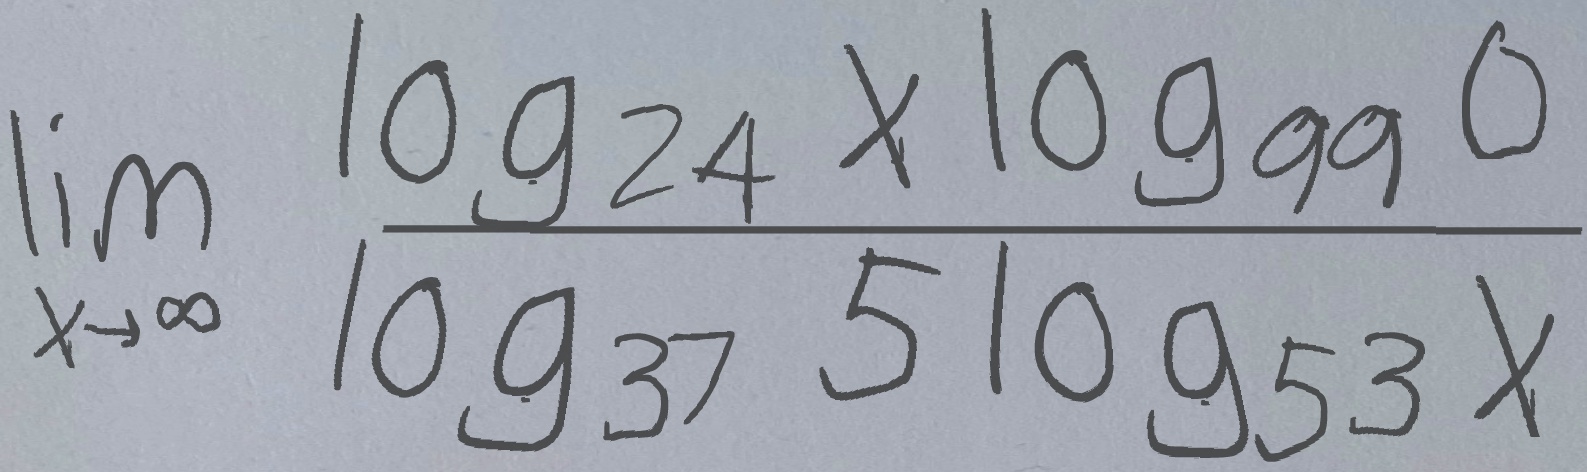 lim x→∞ (log₂₄ x log₉₉ 0) / (log₃₇ 5 log₅₃ x)